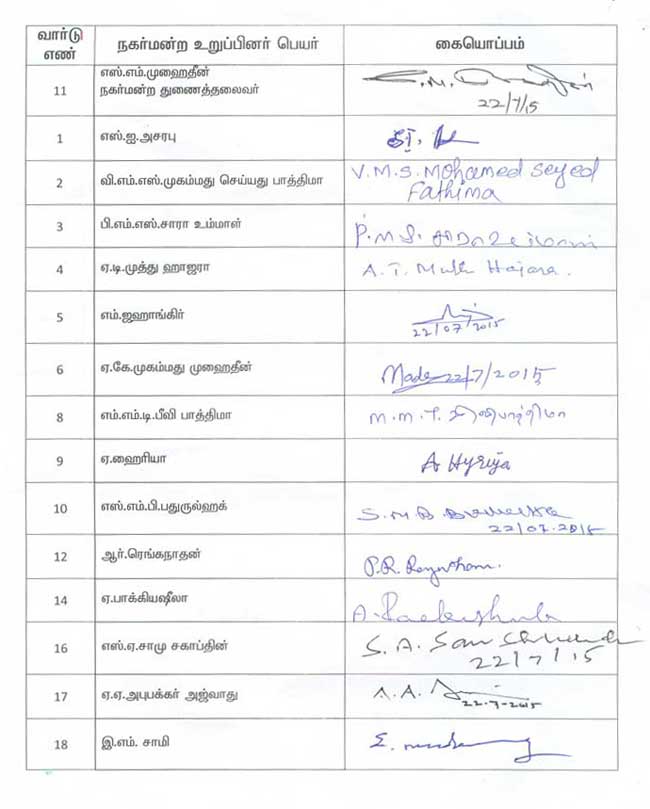 வார்டு எண் நகர்மன்ற உறுப்பினர் பெயர் கையொப்பம்
எஸ்.எம்.முஹைதீன்
11 நகர்மன்ற துணைத்தலைவர்
22/7/15
1 எஸ்.ஐ.அசரபு
2 வி.எம்.எஸ்.முகம்மது செய்யது பாத்திமா V.M.S. Mohamed Seyed
Fathima
3 பி.எம்.எஸ்.சாரா உம்மாள் P.M.S.
4 ஏ.டி.முத்து ஹாஜரா A.T. Muth Hajara.
5 எம்.ஜஹாங்கிர்
22/07/2015
6 ஏ.கே.முகம்மது முஹைதீன் 22/7/2015
8 எம்.எம்.டி.பீவி பாத்திமா M.M.T.
9 ஏ.ஹைரியா A Hyriya
10 எஸ்.எம்.பி.பதுருல்ஹக் S.M.B.
22/07.2015
12 ஆர்.ரெங்கநாதன் P.R.
14 ஏ.பாக்கியஷீலா A.
16 எஸ்.ஏ.சாமு சகாப்தின் S.A.
22/7/15
17 ஏ.ஏ.அபுபக்கர் அஜ்வாது A.A.
22.7-2015
18 இ.எம். சாமி E.